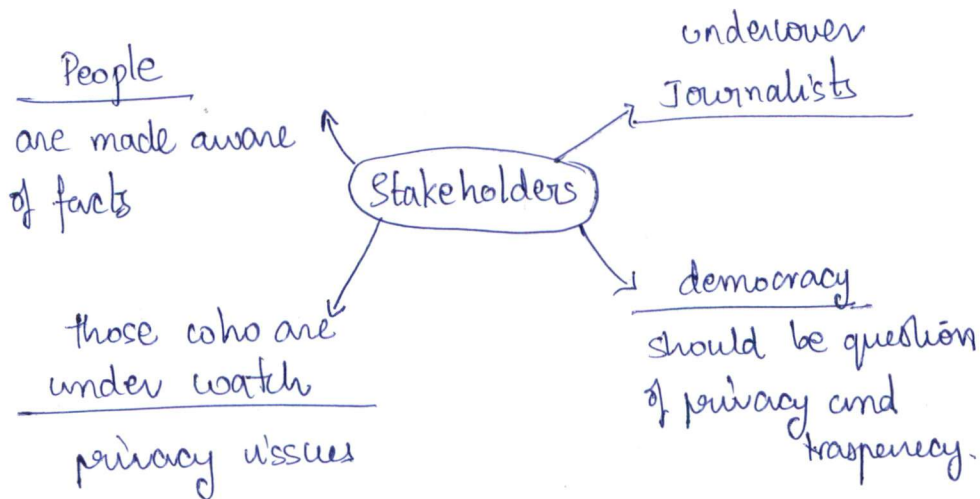 People
are made aware
of facts
undercover
Journalists
Stakeholders
those who are
under watch
privacy issues
democracy
should be question
of privacy and
trasperecy.